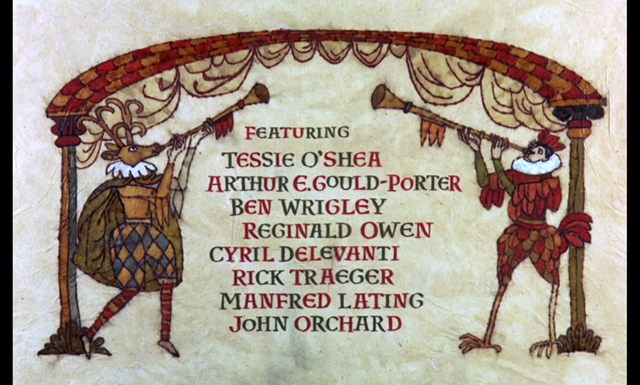 FEATURING
TESSIE O'SHEA
ARTHUR E. GOULD-PORTER
BEN WRIGLEY
REGINALD OWEN
CYRIL DELEVANTI
RICK TRAEGER
MANFRED LATING
JOHN ORCHARD